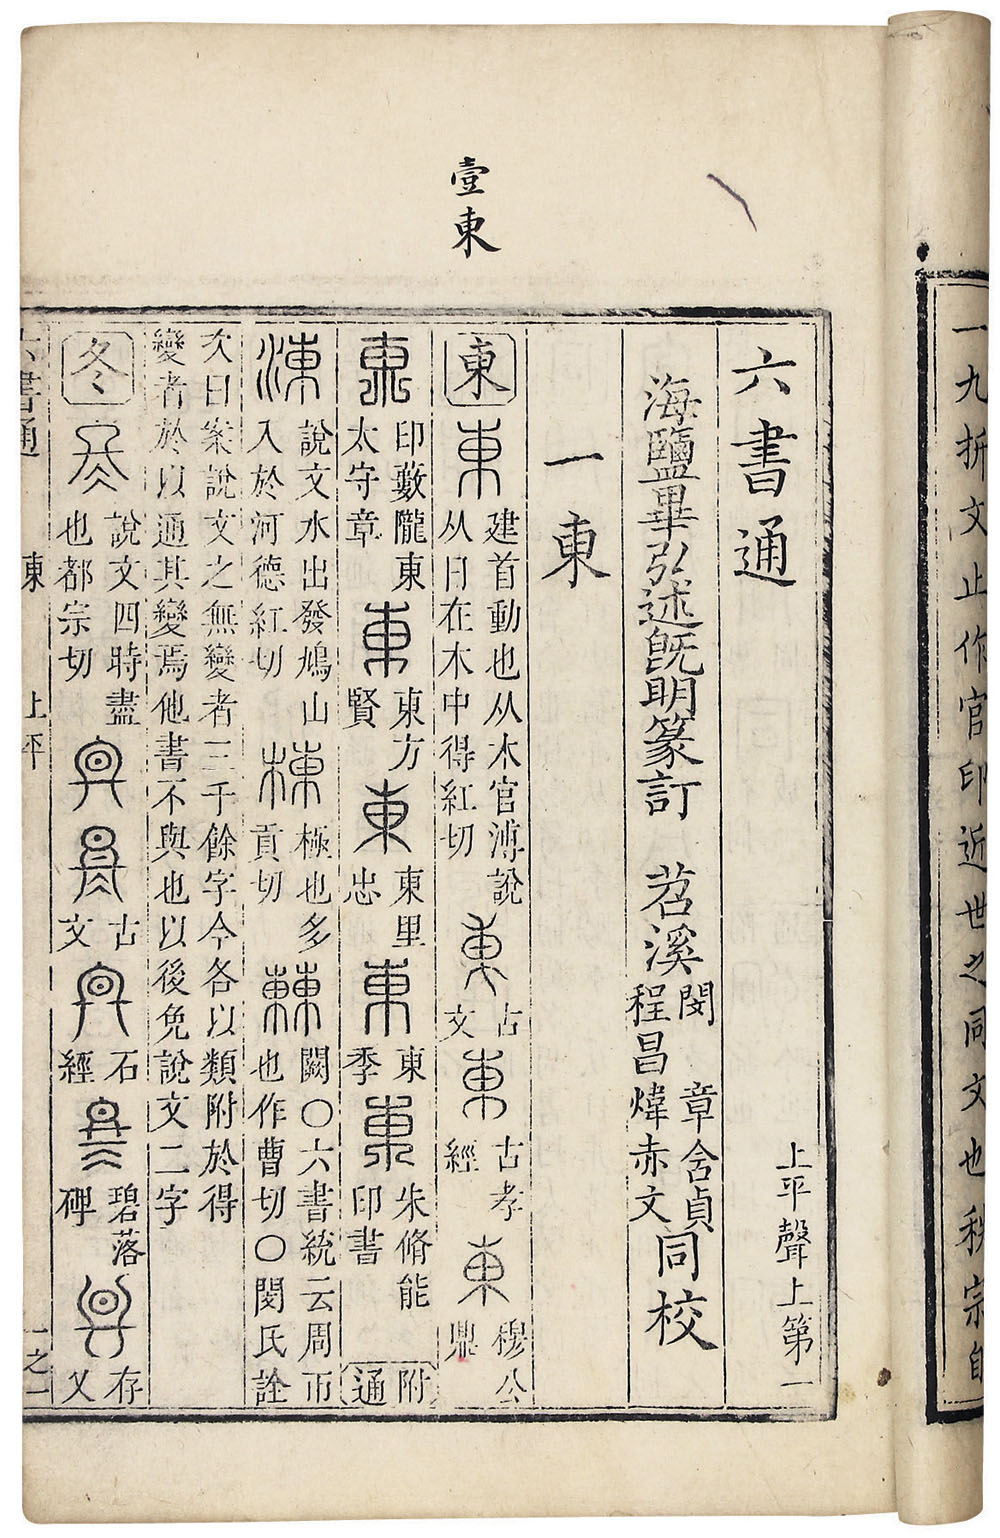 一九折文止作官印近世之同文也秩宗自
壹東
六書通
上平聲上第一
海鹽畢弘述既明篆訂 苕溪
閔 章含貞
程昌煒赤文
同校
一東
東
東
建首動也从木官溥說
从日在木中得紅切
古
文
古孝
經
穆公
鼎
印藪隴東
太守章
東
東方
賢
東
東里
忠
東
東
季
東
朱脩能
印書
附
通
涷
說文水出發鳩山
入於河德紅切
棟
極也多
貢切
𣍘
闕〇六書統云周帀
也作曹切〇閔氏詮
次曰案說文之無變者三千餘字今各以類附於得
變者於以通其變焉他書不與也以後免說文二字
冬
說文四時盡
也都宗切
古
文
石
經
碧落
碑
存
乂
六書通
東
上平
一之一